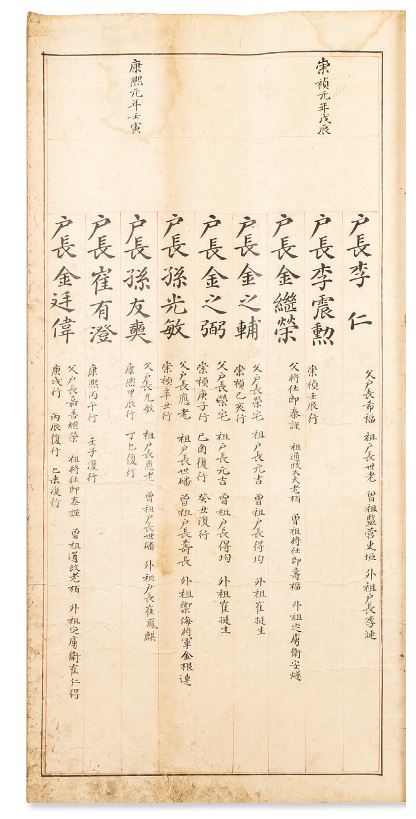 崇禎元年戊辰
康熙元年壬寅
戶長李仁
父戶長希福 祖戶長世老 曾祖監營吏垣 外祖戶長李漣
戶長李震勲
崇禎壬辰行
戶長金繼榮
父將仕郎泰謹 祖通政大夫老栢 曾祖將仕郎壽福 外祖定虜衛安燧
戶長金之輔
父戶長榮宅 祖戶長元吉 曾祖戶長得均 外祖崔挺生
崇禎己亥行
戶長金之弼
父戶長榮宅 祖戶長元吉 曾祖戶長得均 外祖崔挺生
崇禎庚子行 己酉復行 癸丑復行
戶長孫光敏
父戶長應老 祖戶長世璠 曾祖戶長壽長 外祖禦侮將軍金根連
崇禎辛丑行
戶長孫友奭
父戶長光敏 祖戶長應老 曾祖戶長世璠 外祖戶長崔鳳麒
康熙甲辰行 丁巳復行
戶長崔有澄
康熙丙午行 壬子復行
戶長金廷偉
父戶長嘉善繼榮 祖將仕郎泰謹 曾祖通政老栢 外祖定虜衛崔仁得
庚戌行 丙辰復行 己未復行